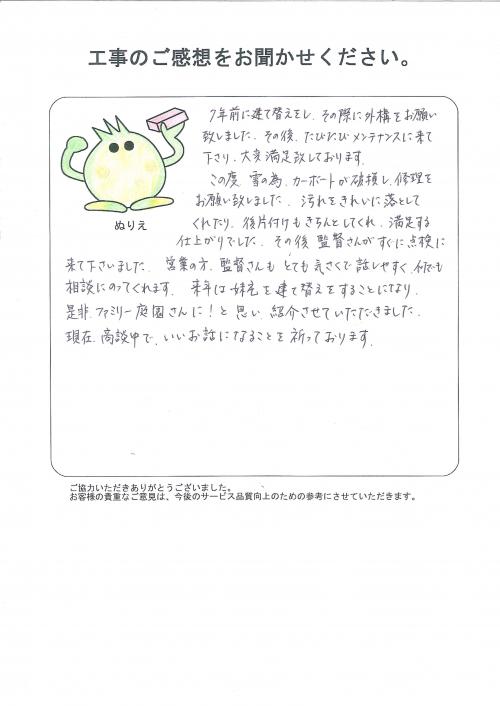 工事のご感想をお聞かせください。
7年前に建て替えをし、その際に外構をお願い
致しました。その後、たびたびメンテナンスに来て
下さり、大変満足致しております。
この度、雪の為、カーポートが破損し、修理を
お願い致しました。汚れをきれいに落として
くれたり、後片付けもきちんとしてくれ、満足する
ぬりえ
仕上がりでした。その後、監督さんがすぐに点検に
来て下さいました。営業の方、監督さんもとても気さくで話しやすく、何でも
相談にのってくれます。来年は妹宅を建て替えをすることになり、
是非、ファミリー庭園さんに!と思い、紹介させていただきました。
現在、商談中で、いいお話になることを祈っております。
ご協力いただきありがとうございました。
お客様の貴重なご意見は、今後のサービス品質向上のための参考にさせていただきます。